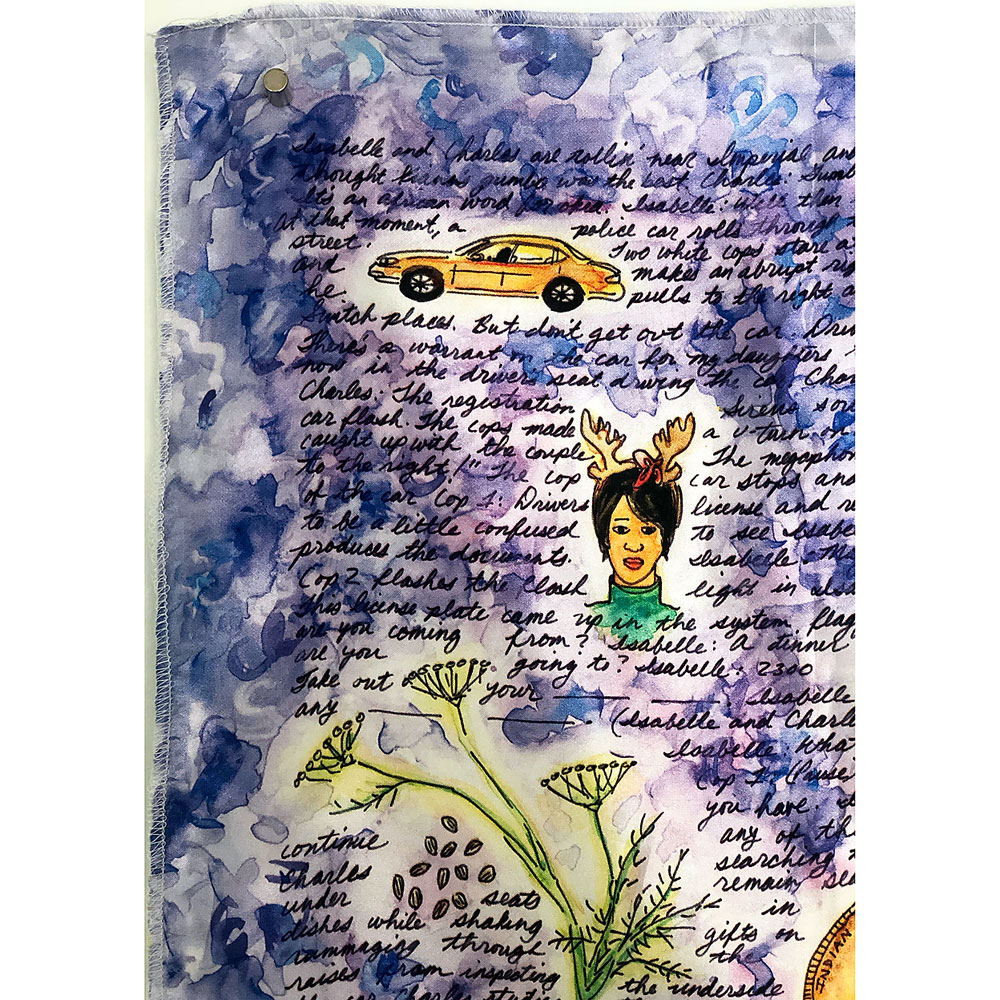 Isabelle and Charles are rollin' near Imperial and
thought was the last. Charles:
It's an african word for okra. Isabelle: Well then
at that moment, a police car rolls through
street. Two white cops stare a
and makes an abrupt rig
he. pulls to the right a
Switch places. But don't get out the car. Driv
There's a warrant on the car for my daughters
now in the drivers seat driving the car. Char
Charles: The registration Sirens sou
car flash. The cops made a u-turn on
caught up with the couple The megaphon
to the right!" The cop car stops and
of the car Cop 1: Drivers license and re
to be a little confused to see Isabe
produces the documents. Isabelle: M
Cop 2 flashes the flash light in Isa
This license plate came up in the system flagg
are you coming from? Isabelle: A dinner
are you going to? Isabelle: 2300
Take out your Isabelle
any (Isabelle and Charle
Isabelle: Wha
Cop 1: (Pause
you have. Is
continue any of th
Charles searching t
under seats remain sea
dishes while shaking in
rummaging through gifts on
raises from inspecting the
the underside
the car. Charles
INDIAN